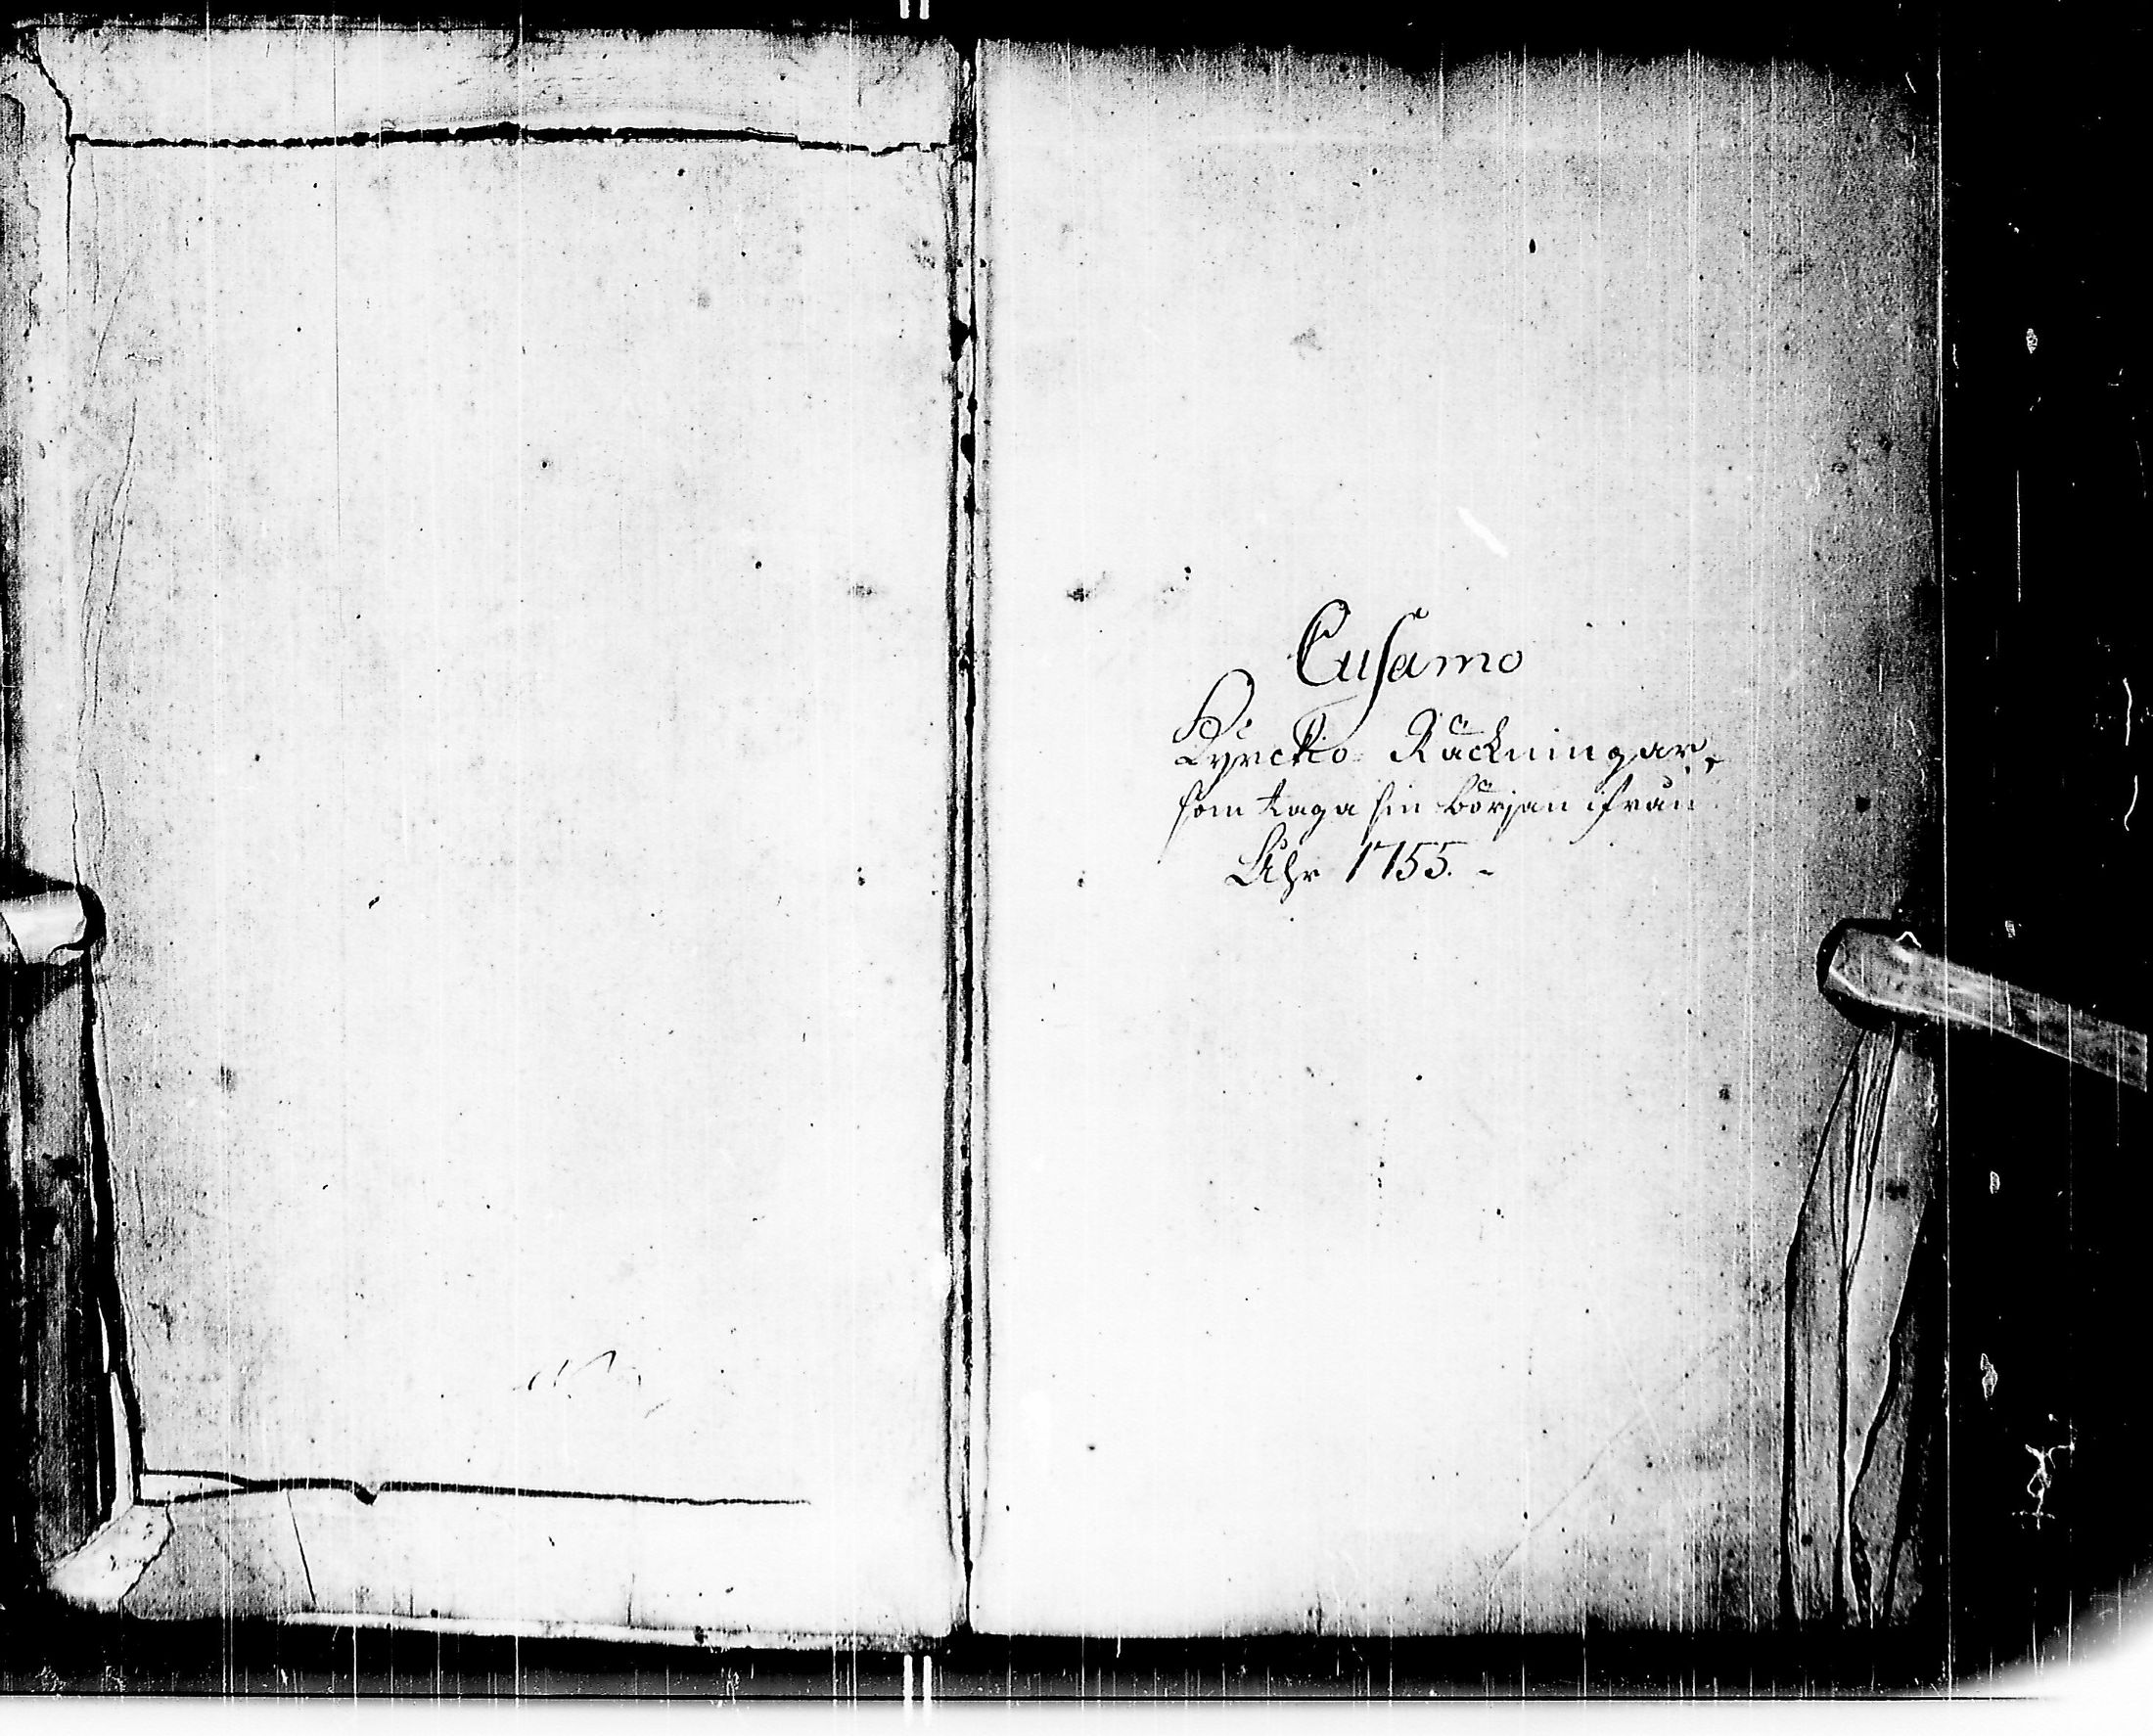 Cusamo
Kyrckio Räckningar,
som taga sin början ifrån
Åhr 1755.